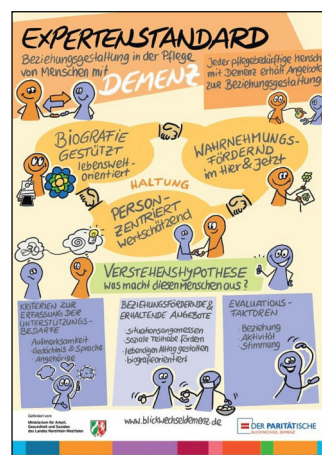 EXPERTENSTANDARD
Beziehungsgestaltung in der Pflege
von Menschen mit
DEMENZ
Jeder pflegebedürftige Mensch
mit Demenz erhält Angebote
zur Beziehungsgestaltung
BIOGRAFIE
GESTÜTZT
lebenswelt-
orientiert
WAHRNEHMUNGS-
FÖRDERND
im Hier & Jetzt
HALTUNG
PERSON-
ZENTRIERT
wertschätzend
VERSTEHENSHYPOTHESE
was macht diesen Menschen aus?
KRITERIEN ZUR
ERFASSUNG DER
UNTERSTÜTZUNGS-
BEDARFE
- Aufmerksamkeit
- Gedächtnis & Sprache
- Angehörige
BEZIEHUNGSFÖRDERNDE &
ERHALTENDE ANGEBOTE
situationsangemessen
soziale Teilhabe fördern
lebendigen Alltag gestalten
biografieorientiert
EVALUATIONS-
FAKTOREN
Beziehung
Aktivität
Stimmung
Gefördert vom:
Ministerium für Arbeit,
Gesundheit und Soziales
des Landes Nordrhein-Westfalen
www.blickwechseldemenz.de
DER PARITÄTISCHE
BLICKWECHSEL DEMENZ